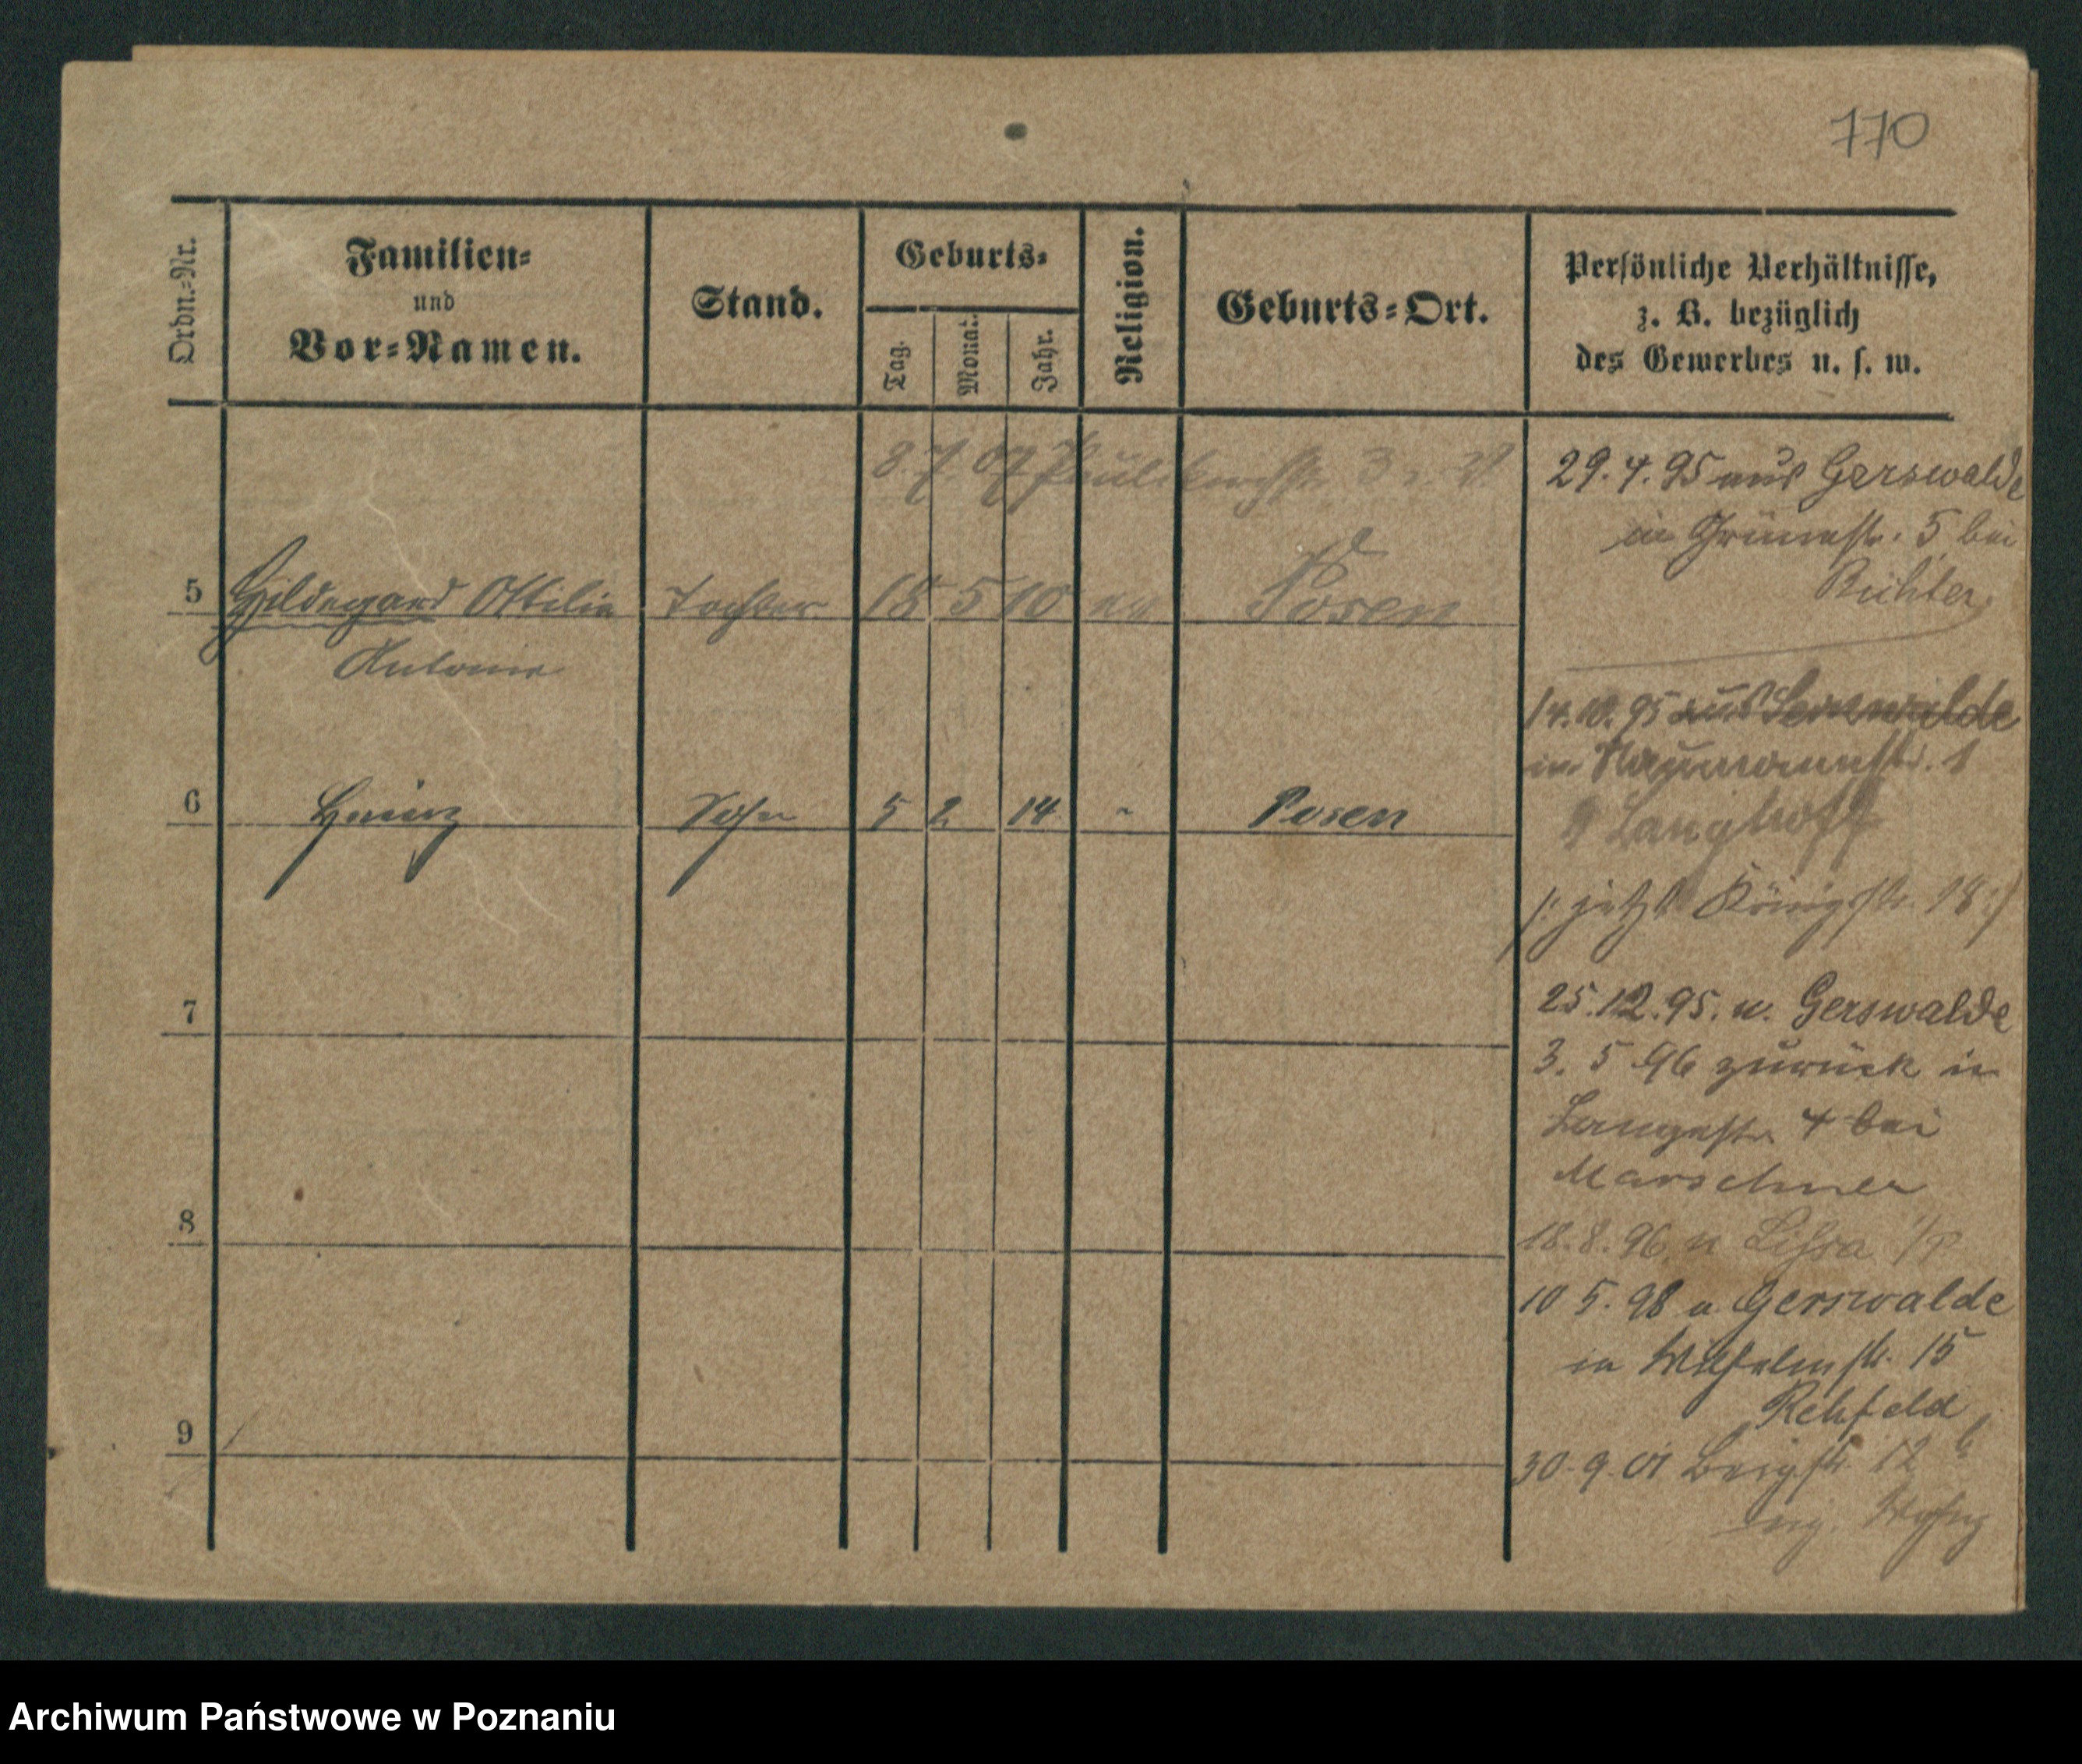 770
Ordn.-Nr.
Familien-
und
Vor-Namen.
Stand.
Geburts-
Tag.
Monat.
Jahr.
Religion.
Geburts-Ort.
Persönliche Verhältnisse,
z. B. bezüglich
des Gewerbes u. s. w.
8 7. 07 Paulikirchstr. 3
5 Hildegard Ottilie Tochter 18 5 10 ev Posen
Antonie
6 Heinz Sohn 5 2 14 " Posen
7
8
9
29. 4. 95 aus Gerswalde
in Grünestr. 5 bei
14. 10. 95 aus
in Naumannstr. 1
Langhoff
/: jetzt Königstr. 18 :/
25. 12. 95. n. Gerswalde
3. 5 96 zurück in
Langestr. 4 bei
Marschner
18. 8. 96 n Lissa i/P
10 5. 98 a Gerswalde
in Wilhelmstr. 15
Rehfeld
30. 9. 01 Bergstr 12 b
Archiwum Państwowe w Poznaniu